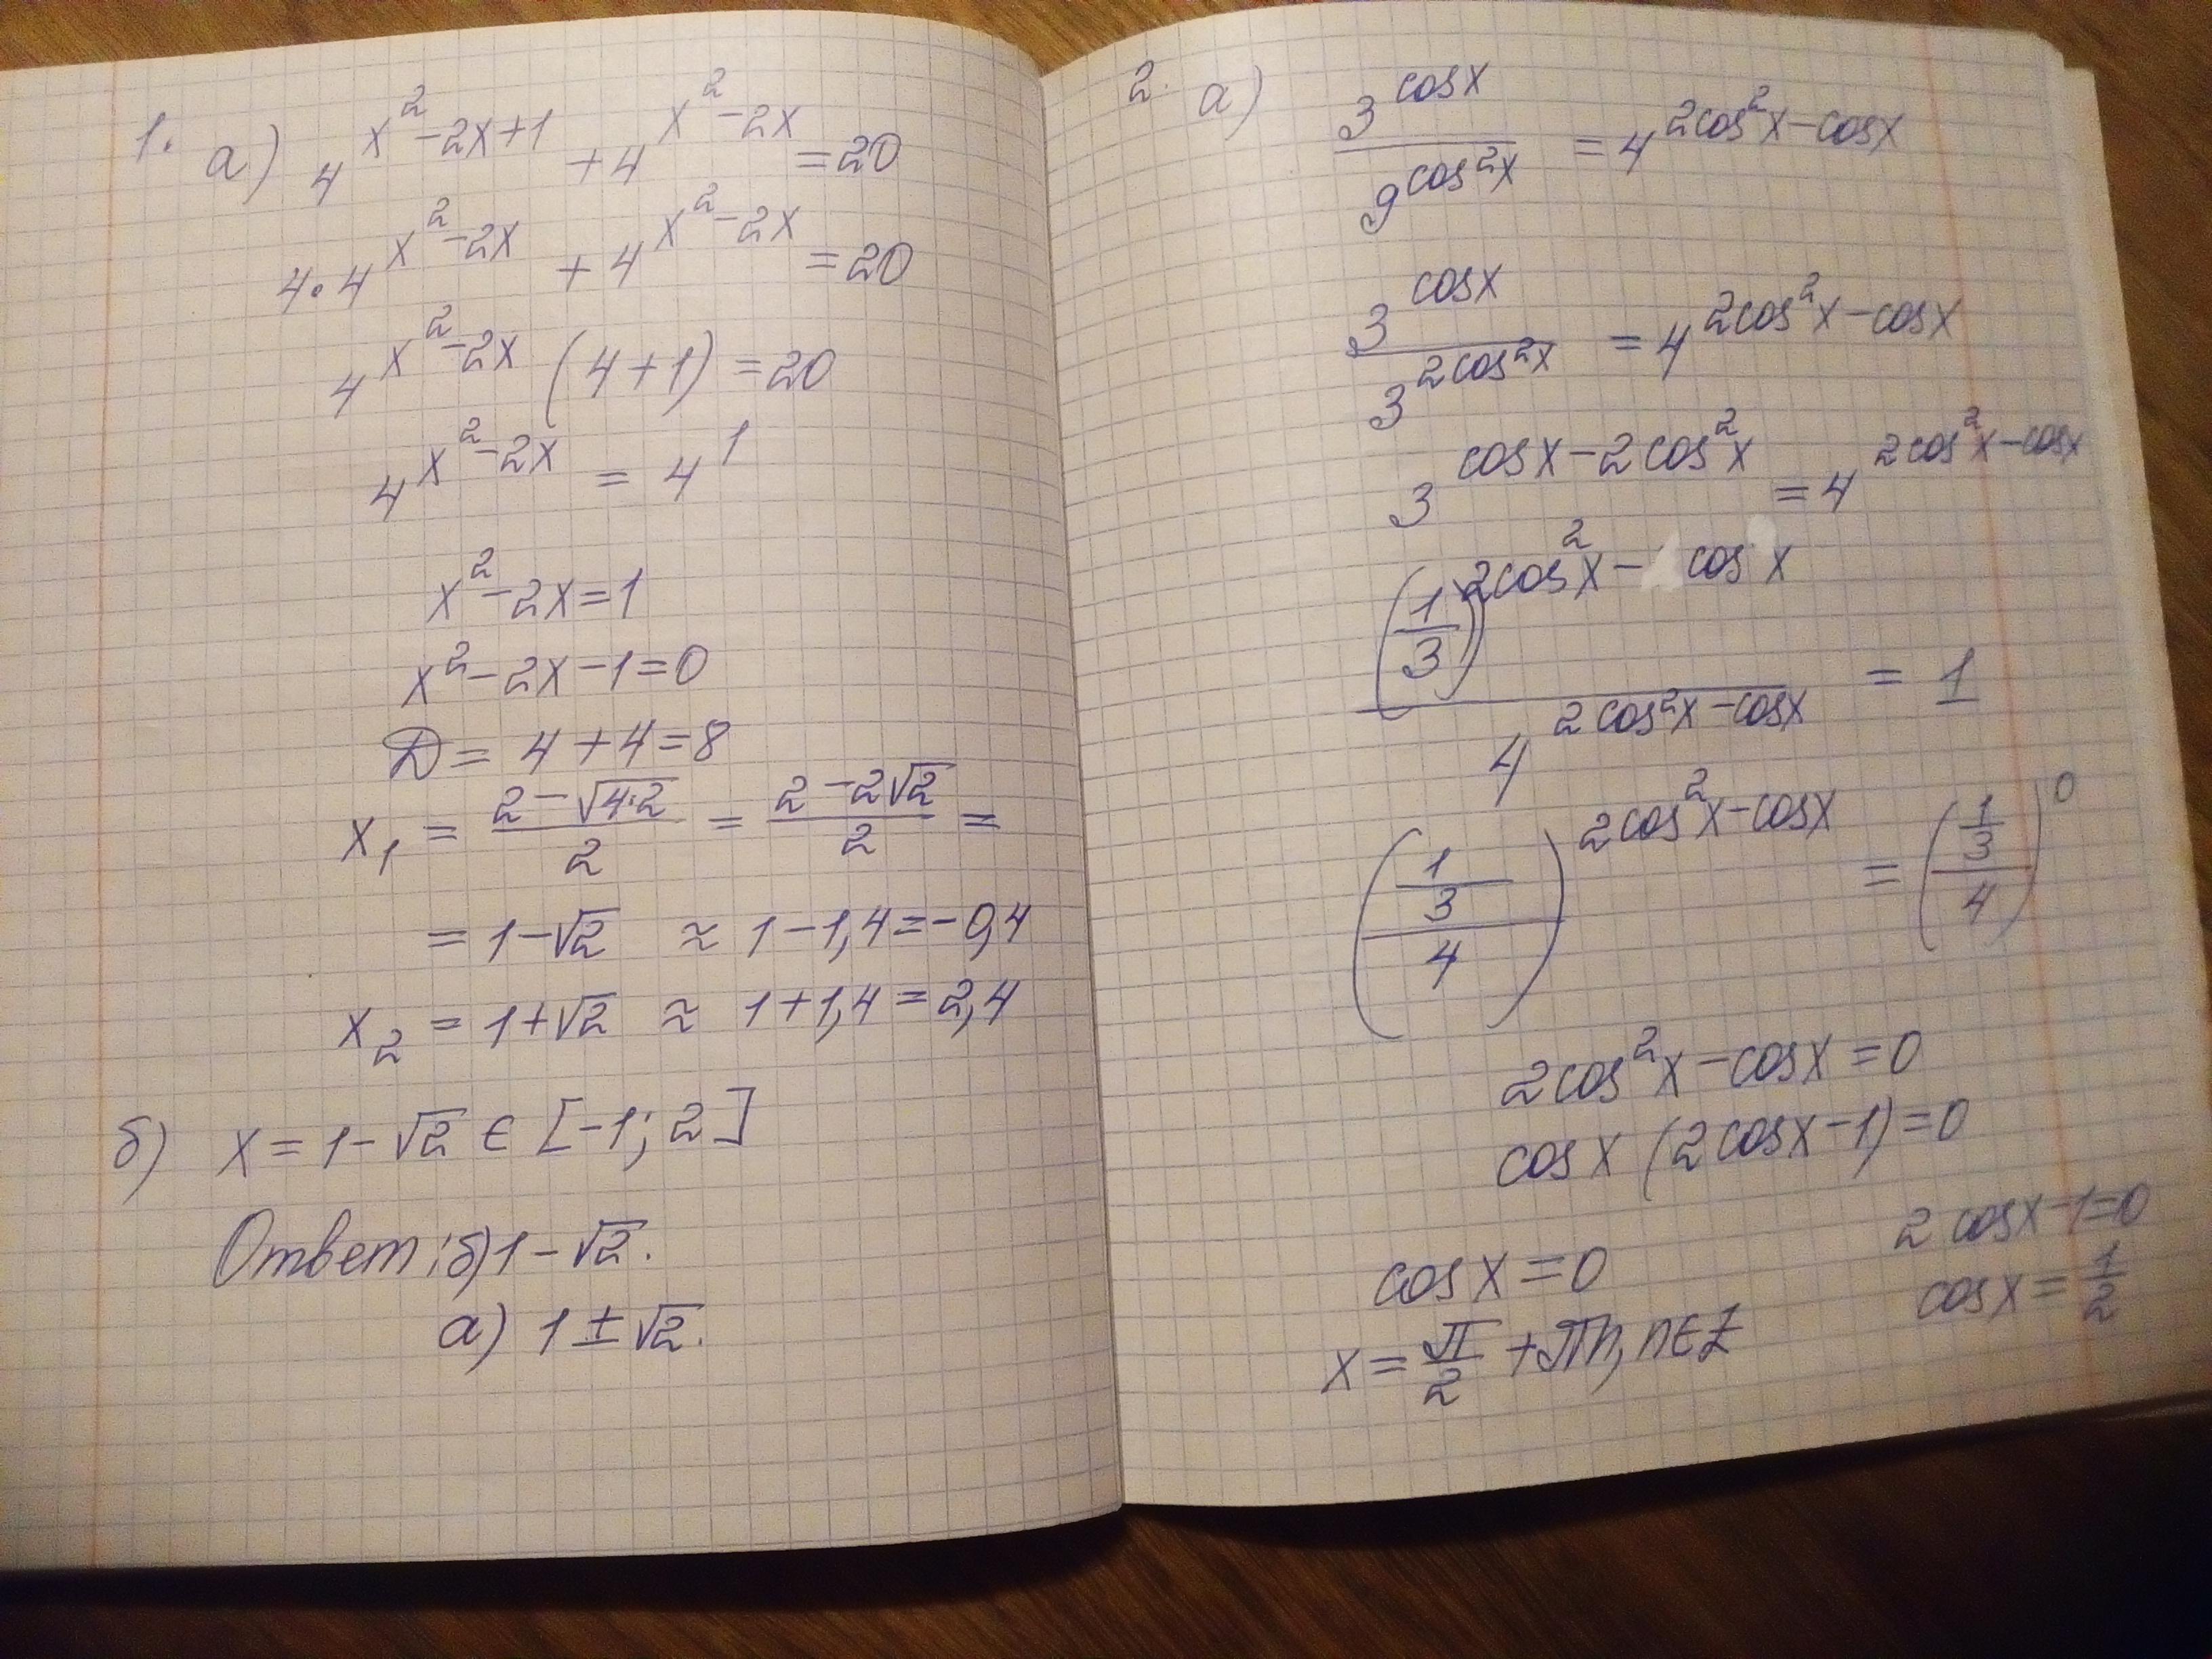 1. а) 4^(x²-2x+1) + 4^(x²-2x) = 20
4·4^(x²-2x) + 4^(x²-2x) = 20
4^(x²-2x) (4+1) = 20
4^(x²-2x) = 4¹
x²-2x=1
x²-2x-1=0
D = 4+4=8
x₁ = (2-√(4·2))/2 = (2-2√2)/2 =
= 1-√2 ≈ 1-1,4=-0,4
x₂ = 1+√2 ≈ 1+1,4=2,4
б) x=1-√2 ∈ [-1; 2]
Ответ: б) 1-√2.
а) 1±√2.
2. а) 3^(cosx) / 9^(cos²x) = 4^(2cos²x-cosx)
3^(cosx) / 3^(2cos²x) = 4^(2cos²x-cosx)
3^(cosx-2cos²x) = 4^(2cos²x-cosx)
(1/3)^(2cos²x-cosx) / 4^(2cos²x-cosx) = 1
((1/3)/4)^(2cos²x-cosx) = ((1/3)/4)⁰
2cos²x-cosx=0
cosx (2cosx-1)=0
cosx=0 2cosx-1=0
x=π/2+πn, n∈Z cosx=1/2